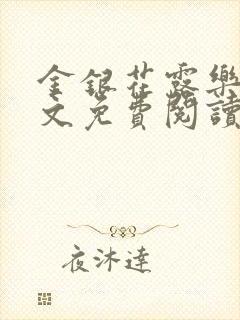 金銀花露樂
文免費閱讀
夜沐達